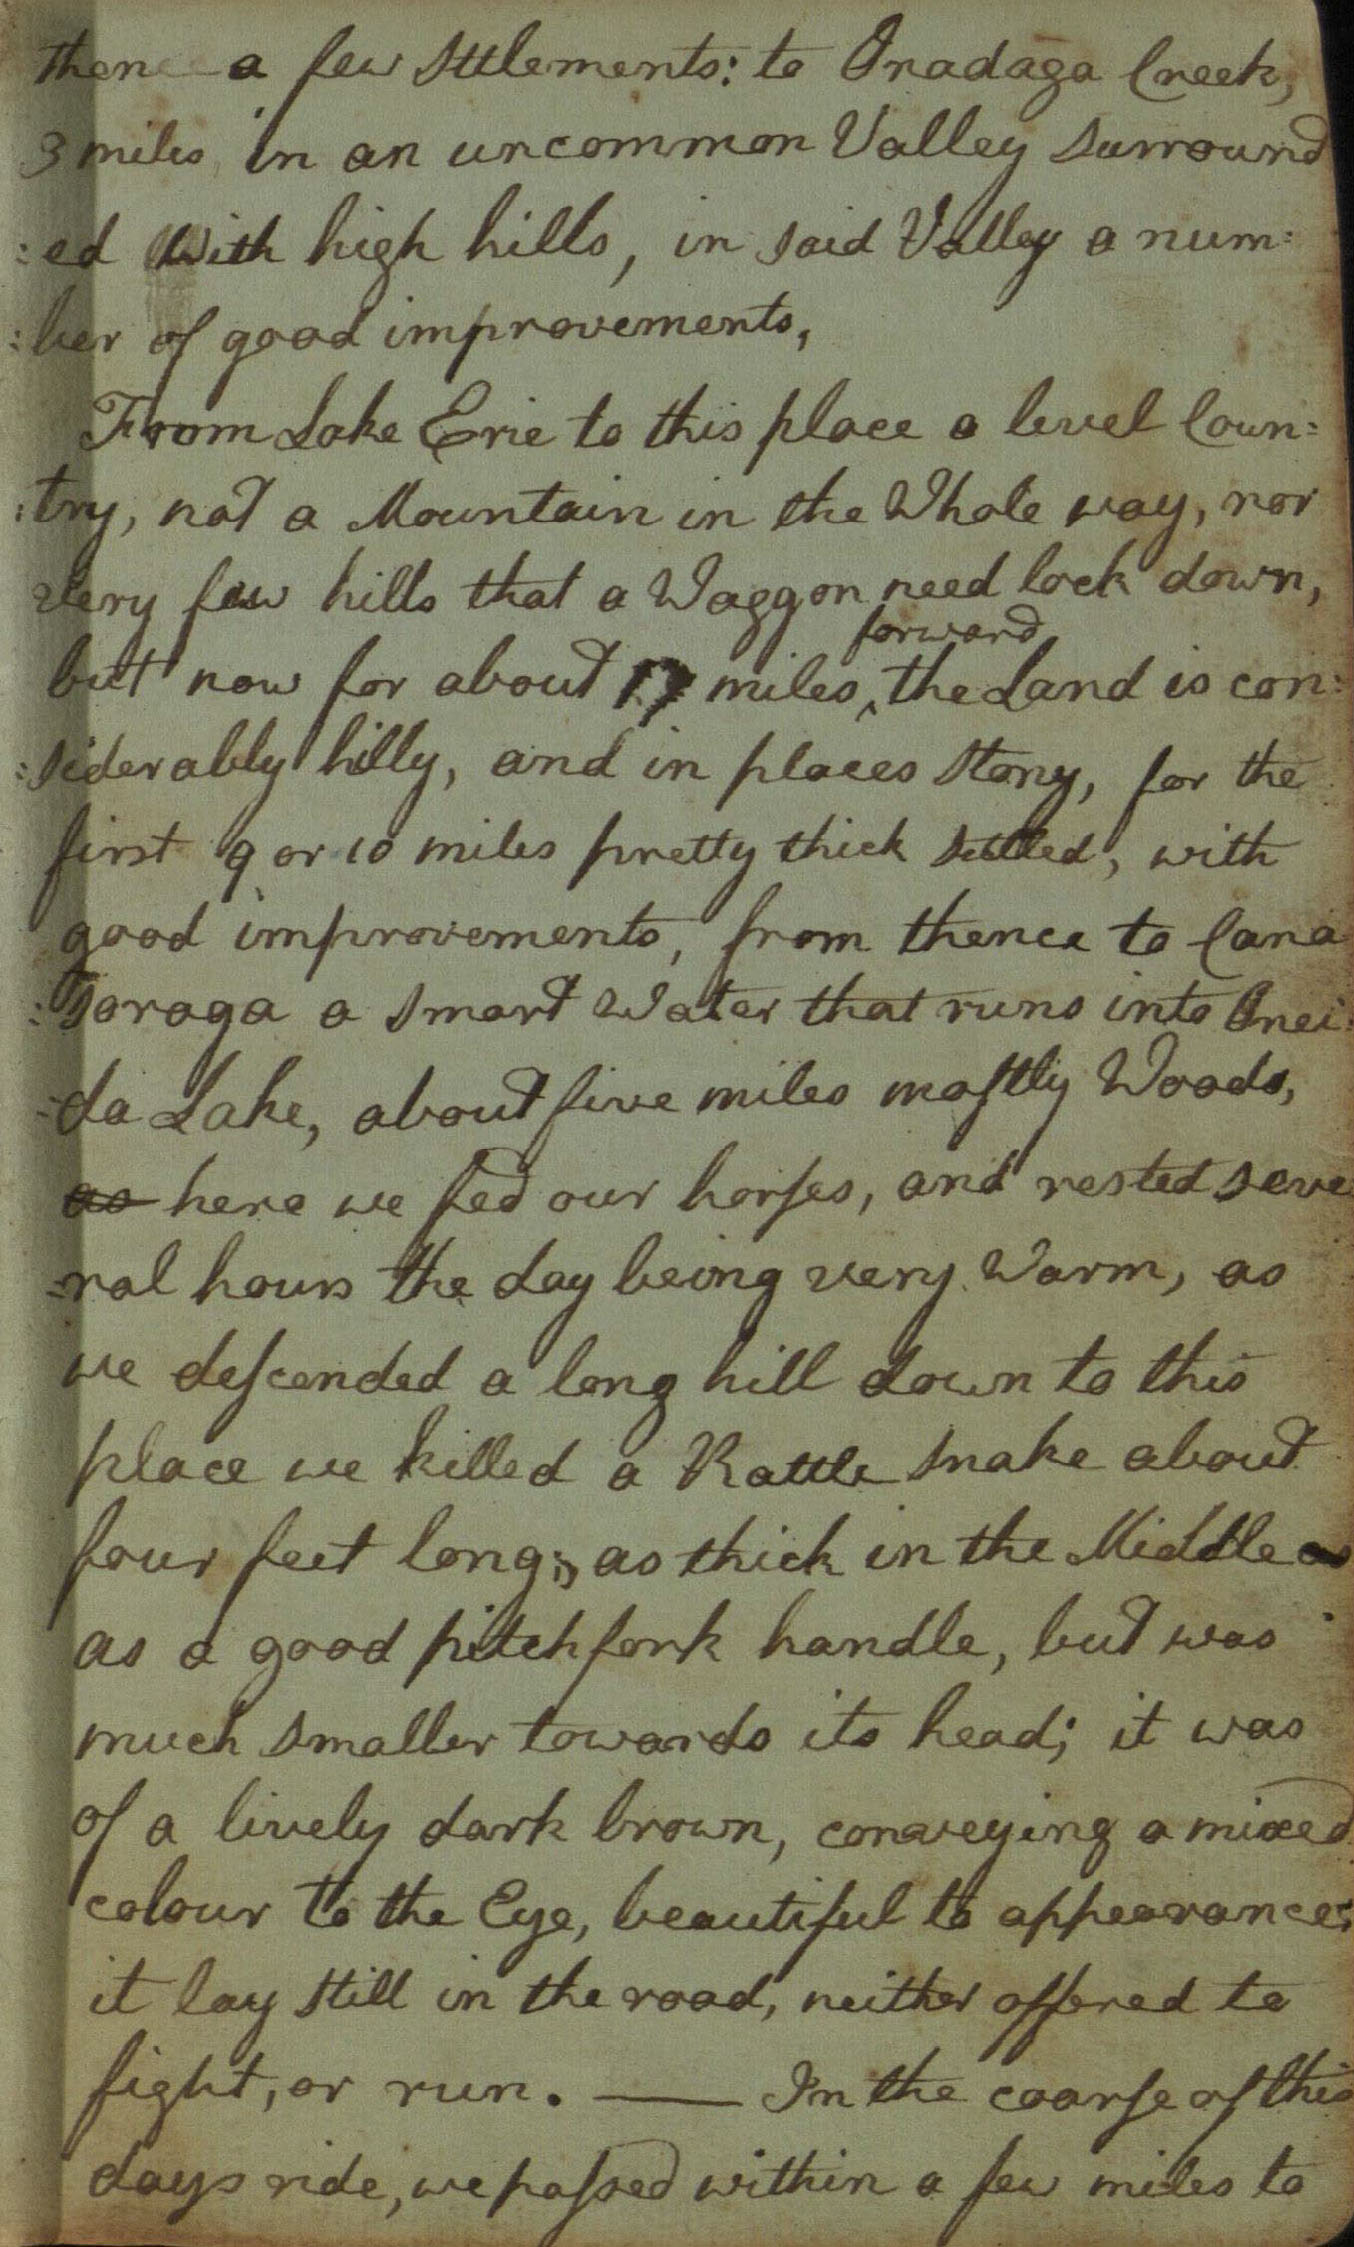 thence a few Sttlements: to Onadaga Creek,
3 miles in an uncommon Valley surround
:ed With high hills, in said Valley a num:
:ber of good improvements,
From Lake Erie to this place a level Coun:
:try, not a Mountain in the Whole way, nor
very few hills that a Waggon need lock down,
forward
but now for about 17 miles ‸ the Land is con:
:siderably hilly, and in places Stony, for the
first 9 or 10 miles pretty thick settled, with
good improvements, from thence to Cana
:Soraga a smart Water that runs into Onei:
:da Lake, about five miles moſtly Woods,
as here we fed our horſes, and rested seve
:ral hours the day being very Warm, as
we deſcended a long hill down to this
place we killed a Rattle snake about
four feet long; as thick in the Middle as
as a good pitchfork handle, but was
much smaller towards its head; it was
of a lively dark brown, conveying a mixed
colour to the Eye, beautiful to appearance;
it lay still in the road, neither offered to
fight, or run. — In the coarſe of this
days ride, we paſsed within a few miles to